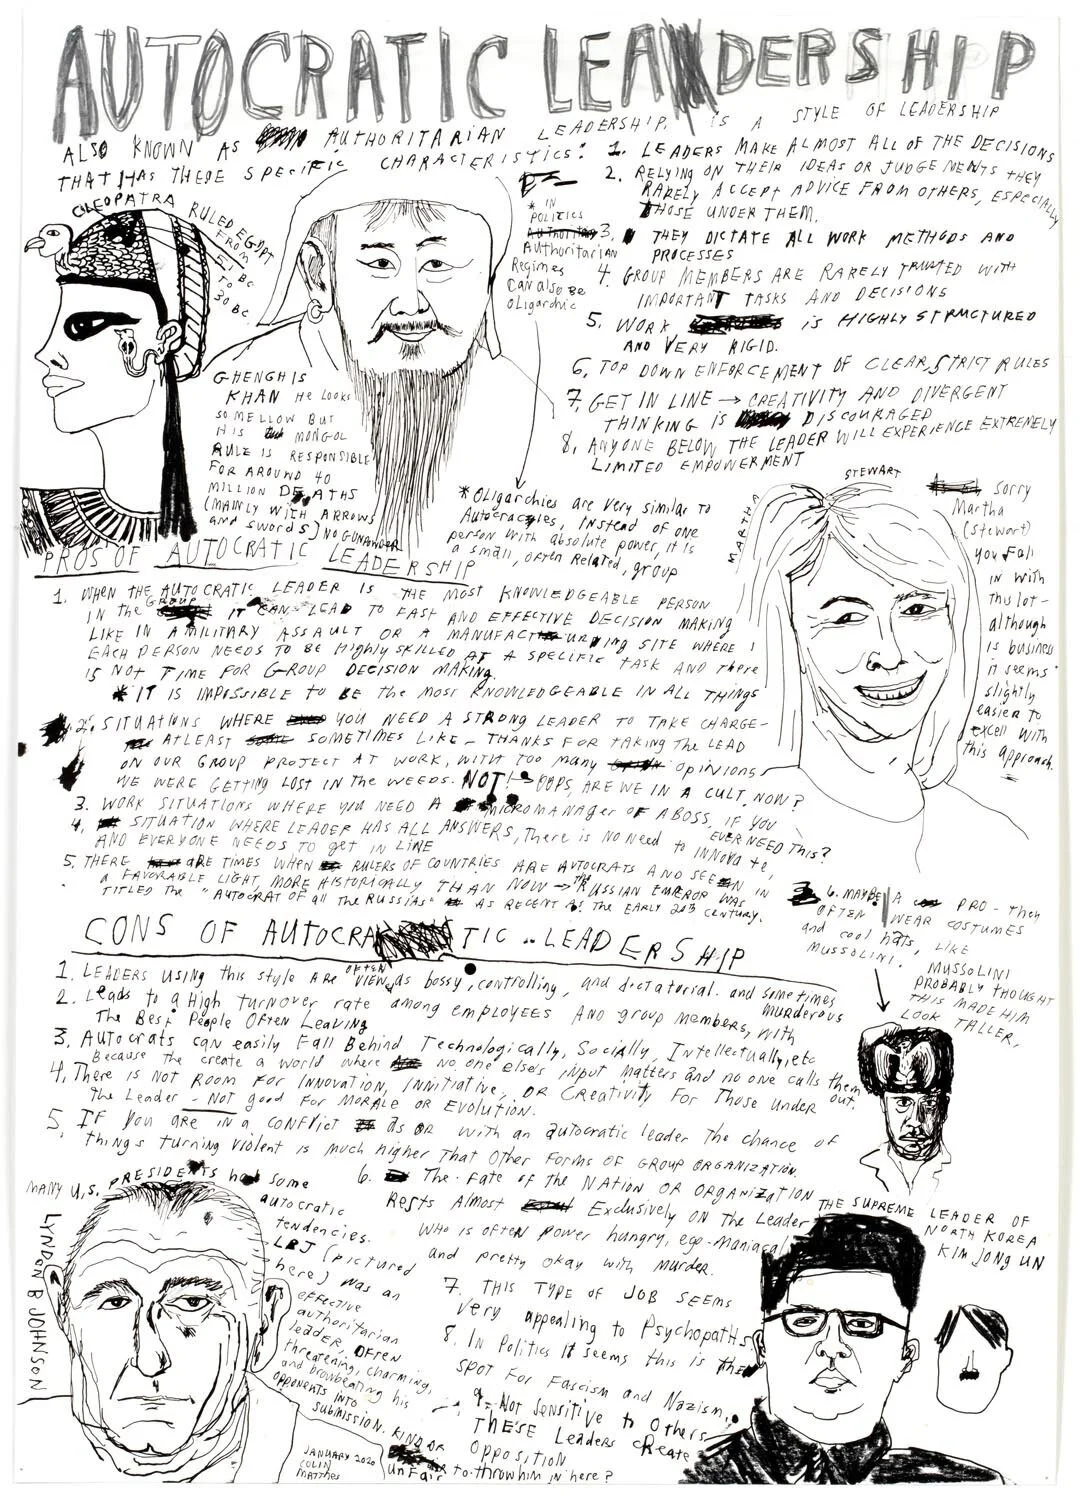 AUTOCRATIC LEADERSHIP
ALSO KNOWN AS AUTHORITARIAN LEADERSHIP, IS A STYLE OF LEADERSHIP
THAT HAS THESE SPECIFIC CHARACTERISTICS:
1. LEADERS MAKE ALMOST ALL OF THE DECISIONS
2. RELYING ON THEIR IDEAS OR JUDGEMENTS THEY
RARELY ACCEPT ADVICE FROM OTHERS, ESPECIALLY
THOSE UNDER THEM.
3. THEY DICTATE ALL WORK METHODS AND
PROCESSES
4. GROUP MEMBERS ARE RARELY TRUSTED WITH
IMPORTANT TASKS AND DECISIONS
5. WORK IS HIGHLY STRUCTURED
AND VERY RIGID.
6. TOP DOWN ENFORCEMENT OF CLEAR, STRICT RULES
7. GET IN LINE → CREATIVITY AND DIVERGENT
THINKING IS DISCOURAGED
8. ANYONE BELOW THE LEADER WILL EXPERIENCE EXTREMELY
LIMITED EMPOWERMENT
CLEOPATRA RULED EGYPT
FROM
51 BC
TO
30 BC
* IN
POLITICS
Authoritarian
Regimes
Can also BE
Oligarchic
GHENGHIS
KHAN HE LOOKS
SO MELLOW BUT
HIS MONGOL
RULE IS RESPONSIBLE
FOR AROUND 40
MILLION DEATHS
(MAINLY WITH ARROWS
and swords) NO GUNPOWDER
* Oligarchies are very similar to
Autocracies, Instead of one
person with absolute power, it is
a small, often Related, group
MARTHA STEWART
Sorry
Martha
(stewart)
you Fall
in with
this lot-
although
is business
it seems
slightly
easier to
excell with
this approach.
PROS OF AUTOCRATIC LEADERSHIP
1. WHEN THE AUTOCRATIC LEADER IS THE MOST KNOWLEDGEABLE PERSON
IN the GROUP IT CAN LEAD TO FAST AND EFFECTIVE DECISION MAKING
LIKE IN A MILITARY ASSAULT OR A MANUFACTURING SITE WHERE
EACH PERSON NEEDS TO BE Highly SKILLED AT A SPECIFIC TASK AND there
IS NOT TIME FOR GROUP DECISION MAKING.
* IT IS IMPOSSIBLE TO BE the MOST KNOWLEDGEABLE IN ALL THINGS
2. SITUATIONS WHERE YOU NEED A STRONG LEADER TO TAKE CHARGE-
ATLEAST SOMETIMES LIKE - THANKS FOR TAKING the LEAD
ON OUR GROUP PROJECT AT WORK, WITH TOO MANY opinions
WE WERE GETTING LOST IN THE WEEDS. NOT! → OOPS, ARE WE IN A CULT NOW?
3. WORK SITUATIONS WHERE YOU NEED A MICROMANAGER OF A BOSS. IF YOU
EVER NEED THIS?
4. SITUATION WHERE LEADER HAS ALL ANSWERS, There is No Need to INNOVATE,
AND EVERYONE NEEDS TO get IN LINE
5. THERE ARE TIMES WHEN RULERS OF COUNTRIES ARE AUTOCRATS AND SEEN IN
A FAVORABLE LIGHT, MORE HISTORICALLY THAN NOW → THE RUSSIAN EMPEROR WAS
TITLED the "AUTOCRAT OF all THE RUSSIAS" AS RECENT AS THE EARLY 20th CENTURY.
6. MAYBE A PRO - they
OFTEN WEAR COSTUMES
and cool hats, LIKE
MUSSOLINI.
MUSSOLINI
PROBABLY THOUGHT
THIS MADE HIM
LOOK TALLER.
CONS OF AUTOCRATIC LEADERSHIP
1. LEADERS USING this STYLE ARE OFTEN VIEWED as bossy, controlling, and dictatorial. and sometimes
murderous
2. Leads to a High turnover rate among employees AND group members, with
The Best People Often Leaving
3. Autocrats can easily Fall Behind Technologically, Socially, Intellectually, etc
Because the create a world where no one else's input matters and no one calls them
out.
4. There is NOT ROOM FOR INNOVATION, INNITIATIVE, OR CREATIVITY FOR Those under
the Leader - NOT good FOR MORALE OR EVOLUTION.
5. IF you ARE IN a CONFLICT as OR with an autocratic leader the chance of
things turning violent is much higher THAT OTHER FORMS OF GROUP ORGANIZATION.
6. The Fate of the NATION OR ORGANIZATION
Rests Almost Exclusively ON The Leader
WHO IS OFTEN power hungry, ego-maniacal
and pretty okay with murder.
7. THIS TYPE OF JOB SEEMS
very appealing to Psychopaths
8. IN Politics It Seems this is the
SPOT FOR Fascism and Nazism.
9. Not Sensitive to Others
THESE Leaders CREATE
Opposition
MANY U.S. PRESIDENTS had some
autocratic
tendencies.
LBJ (pictured
here) was an
effective
authoritarian
leader, OFTEN
threatening, charming,
and browbeating his
opponents INTO
SUBMISSION. KINDOF
unfair to throw him in here?
LYNDON B JOHNSON
JANUARY 2020
COLIN
Matthes
THE SUPREME LEADER OF
NORTH KOREA
KIM JONG UN